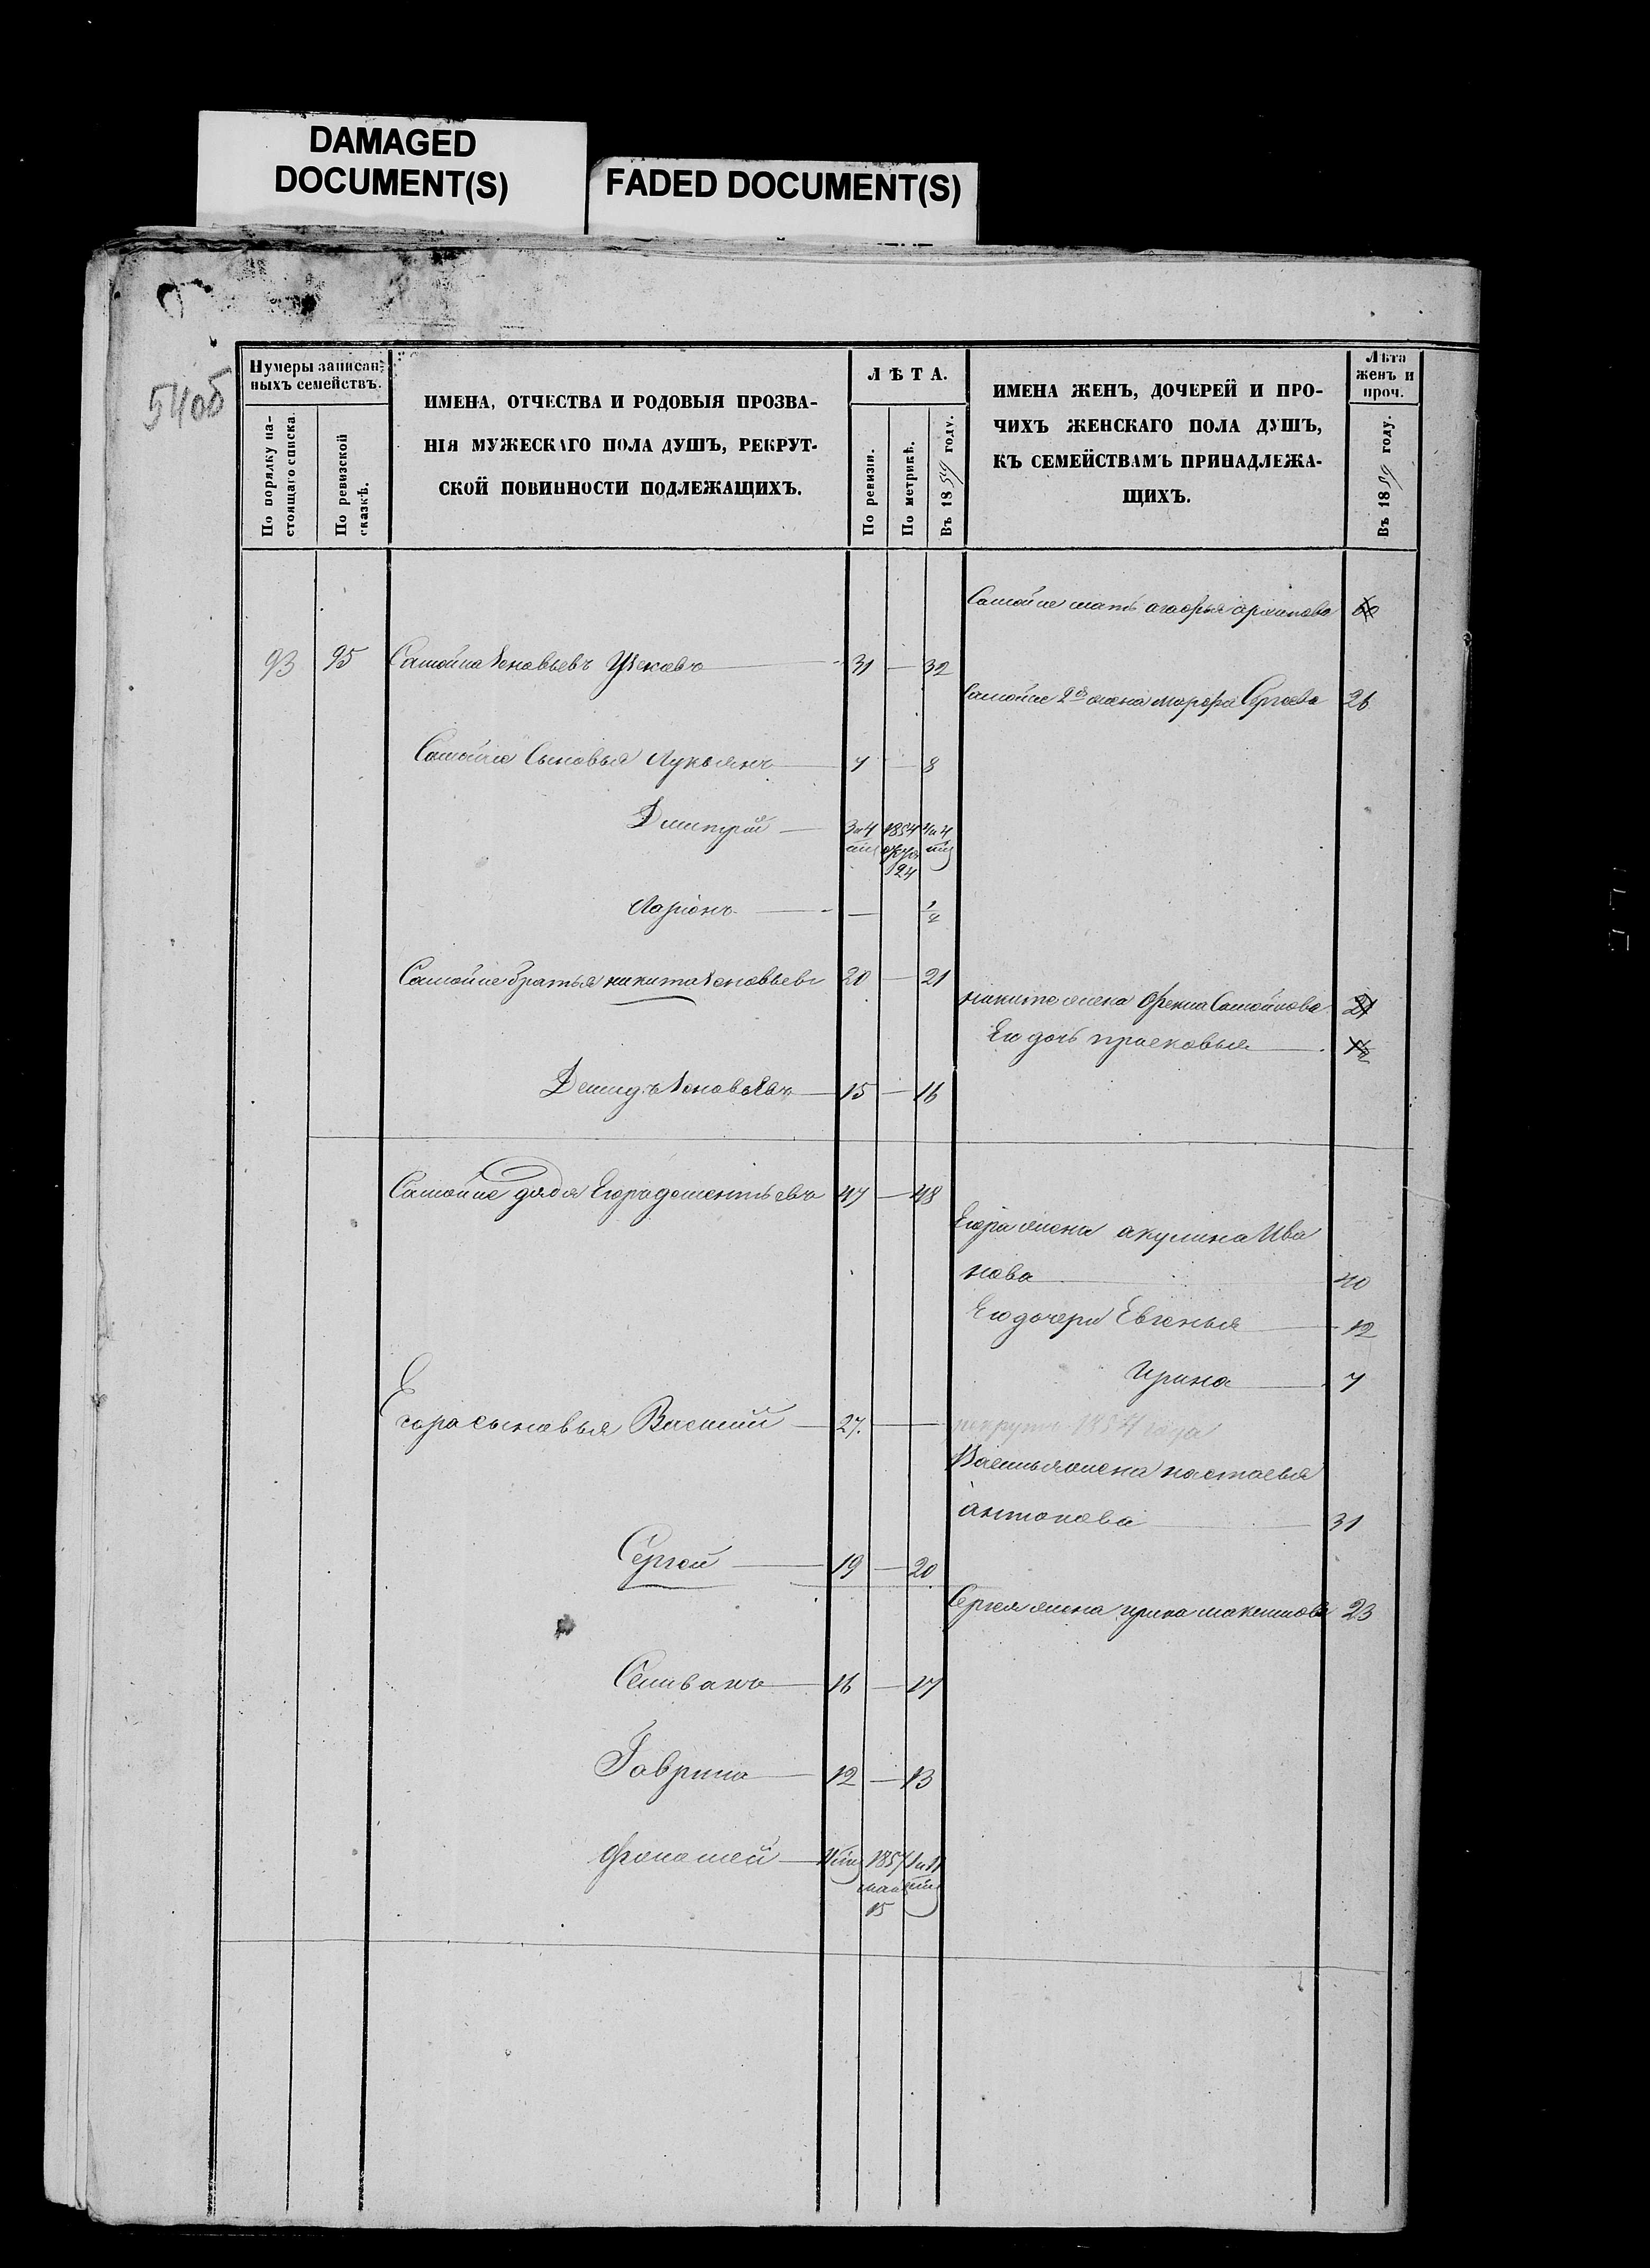 DAMAGED
DOCUMENT(S)
FADED DOCUMENT(S)
54об
Нумеры записан-
ныхъ семействъ.
По порядку на-
стоящаго списка.
По ревизской
сказкѣ.
ИМЕНА, ОТЧЕСТВА И РОДОВЫЯ ПРОЗВА-
НІЯ МУЖЕСКАГО ПОЛА ДУШЪ, РЕКРУТ-
СКОЙ ПОВИННОСТИ ПОДЛЕЖАЩИХЪ.
ЛѢТА.
По ревизіи.
По метрикѣ.
Въ 1859 году.
ИМЕНА ЖЕНЪ, ДОЧЕРЕЙ И ПРО-
ЧИХЪ ЖЕНСКАГО ПОЛА ДУШЪ,
КЪ СЕМЕЙСТВАМЪ ПРИНАДЛЕЖА-
ЩИХЪ.
Лѣта
женъ и
проч.
Въ 1859 году.
Самойле мать 60
93 95 Самойла 31 — 32
Самойле 2я жена марфа Сергеева 26
Самойле Сыновья Лукьянъ 7 — 8
Дмитрій 3 и 4 1854 4 и 4
24
Ларіонъ — 1/2
Самойле братья никита 20 — 21
никите жена Самойлова 21
Ею дочь прасковья
Демидъ 15 — 16
Самойле дядя Егоръ дементьевъ 47 — 48
Егора жена акулина Ива
нова 40
Ею дочери Евгенья 12
Ирина 7
Егора сыновья Василий 27. —
рекрутъ 1857 года
Василья жена настасья
антонова 31
Сергей 19 — 20
Сергея жена ирина максимова 23
Селиванъ 16 — 17
Гаврила 12 — 13
Афонасей 1857 1 и 11
15